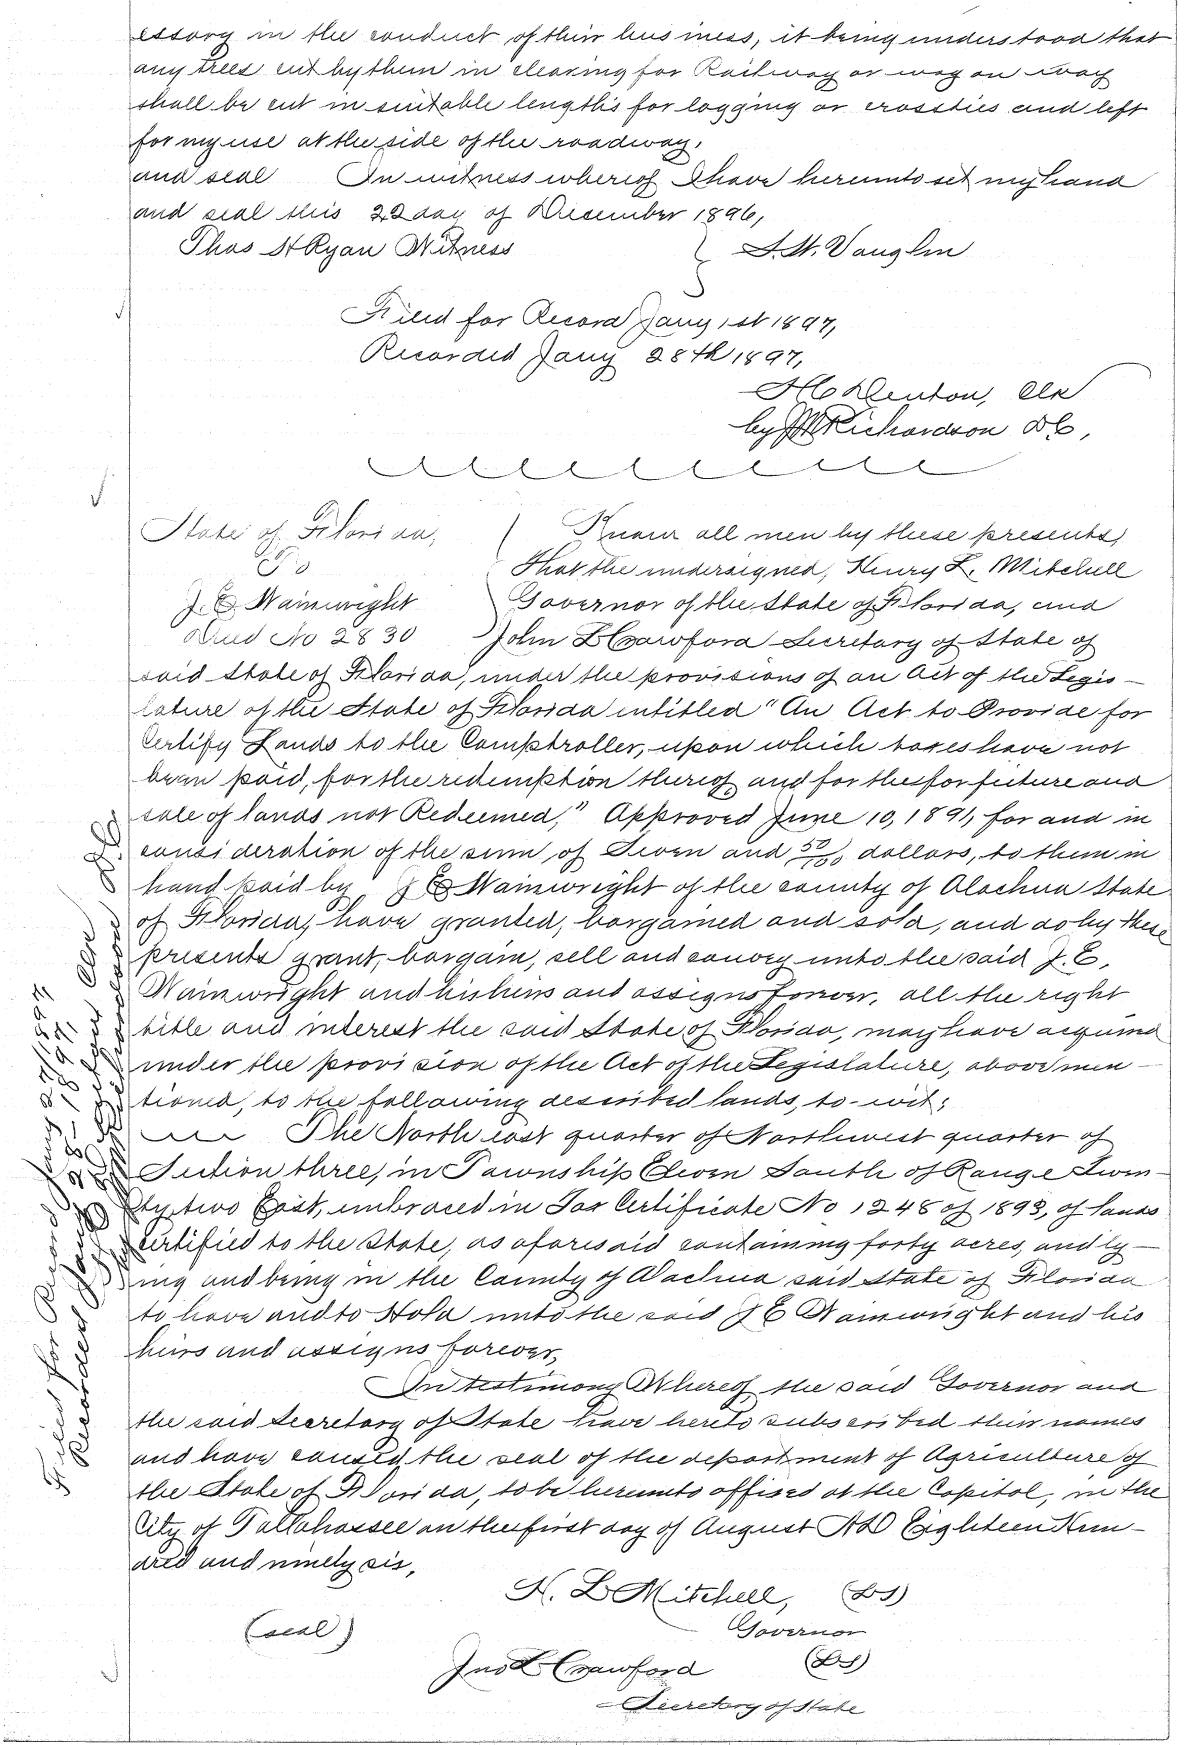 essary in the conduct of their business, it being understood that
any trees cut by them in clearing for Railway or wagon way
shall be cut in suitable lengths for logging or crossties and left
for my use at the side of the roadway,
and seal In witness whereof I have hereunto set my hand
and seal this 22 day of December 1896,
Thos H Ryan Witness
S. H. Vaughn
Filed for Record Jany 1st 1897,
Recorded Jany 28th 1897,
H C Denton, Clk
by Richardson D C,
State of Florida,
To
J. E. Wainwright
Deed No 2830
Know all men by these presents,
That the undersigned, Henry L. Mitchell
Governor of the State of Florida, and
John L Crawford Secretary of State of
said State of Florida, under the provisions of an Act of the Legis-
lature of the State of Florida intitled "An Act to Provide for
Certify Lands to the Comptroller, upon which taxes have not
been paid, for the redemption thereof, and for the forfuture and
sale of lands not Redeemed," Approved June 10, 1891, for and in
consideration of the sum of Seven and 50/100 dollars, to them in
hand paid by J E Wainwright of the county of Alachua State
of Florida, have granted, bargained and sold, and do by these
presents grant, bargain, sell and convey unto the said J. E.
Wainwright and his heirs and assigns forever, all the right
title and interest the said State of Florida, may have acquired
under the provision of the Act of the Legislature, above men-
tioned, to the following described lands, to-wit;
The North east quarter of Northwest quarter of
Section three, in Township Eleven South of Range Twen-
ty two East, embraced in Tax Certificate No 1248 of 1893, of lands
certified to the State, as aforesaid containing forty acres, and ly-
ing and being in the County of Alachua said State of Florida
to have and to Hold unto the said J E Wainwright and his
heirs and assigns forever,
In testimony Whereof the said Governor and
the said Secretary of State have hereto subscribed their names
and have caused the seal of the department of Agriculture of
the State of Florida, to be hereunto affixed at the Capitol, in the
City of Tallahassee on the first day of August A D Eighteen Hun-
dred and ninety six,
H. L Mitchell, (LS)
Governor
(seal)
Jno L Crawford (LS)
Secretary of State
Filed for Record Jany 27/1897
Recorded Jany 28-1897